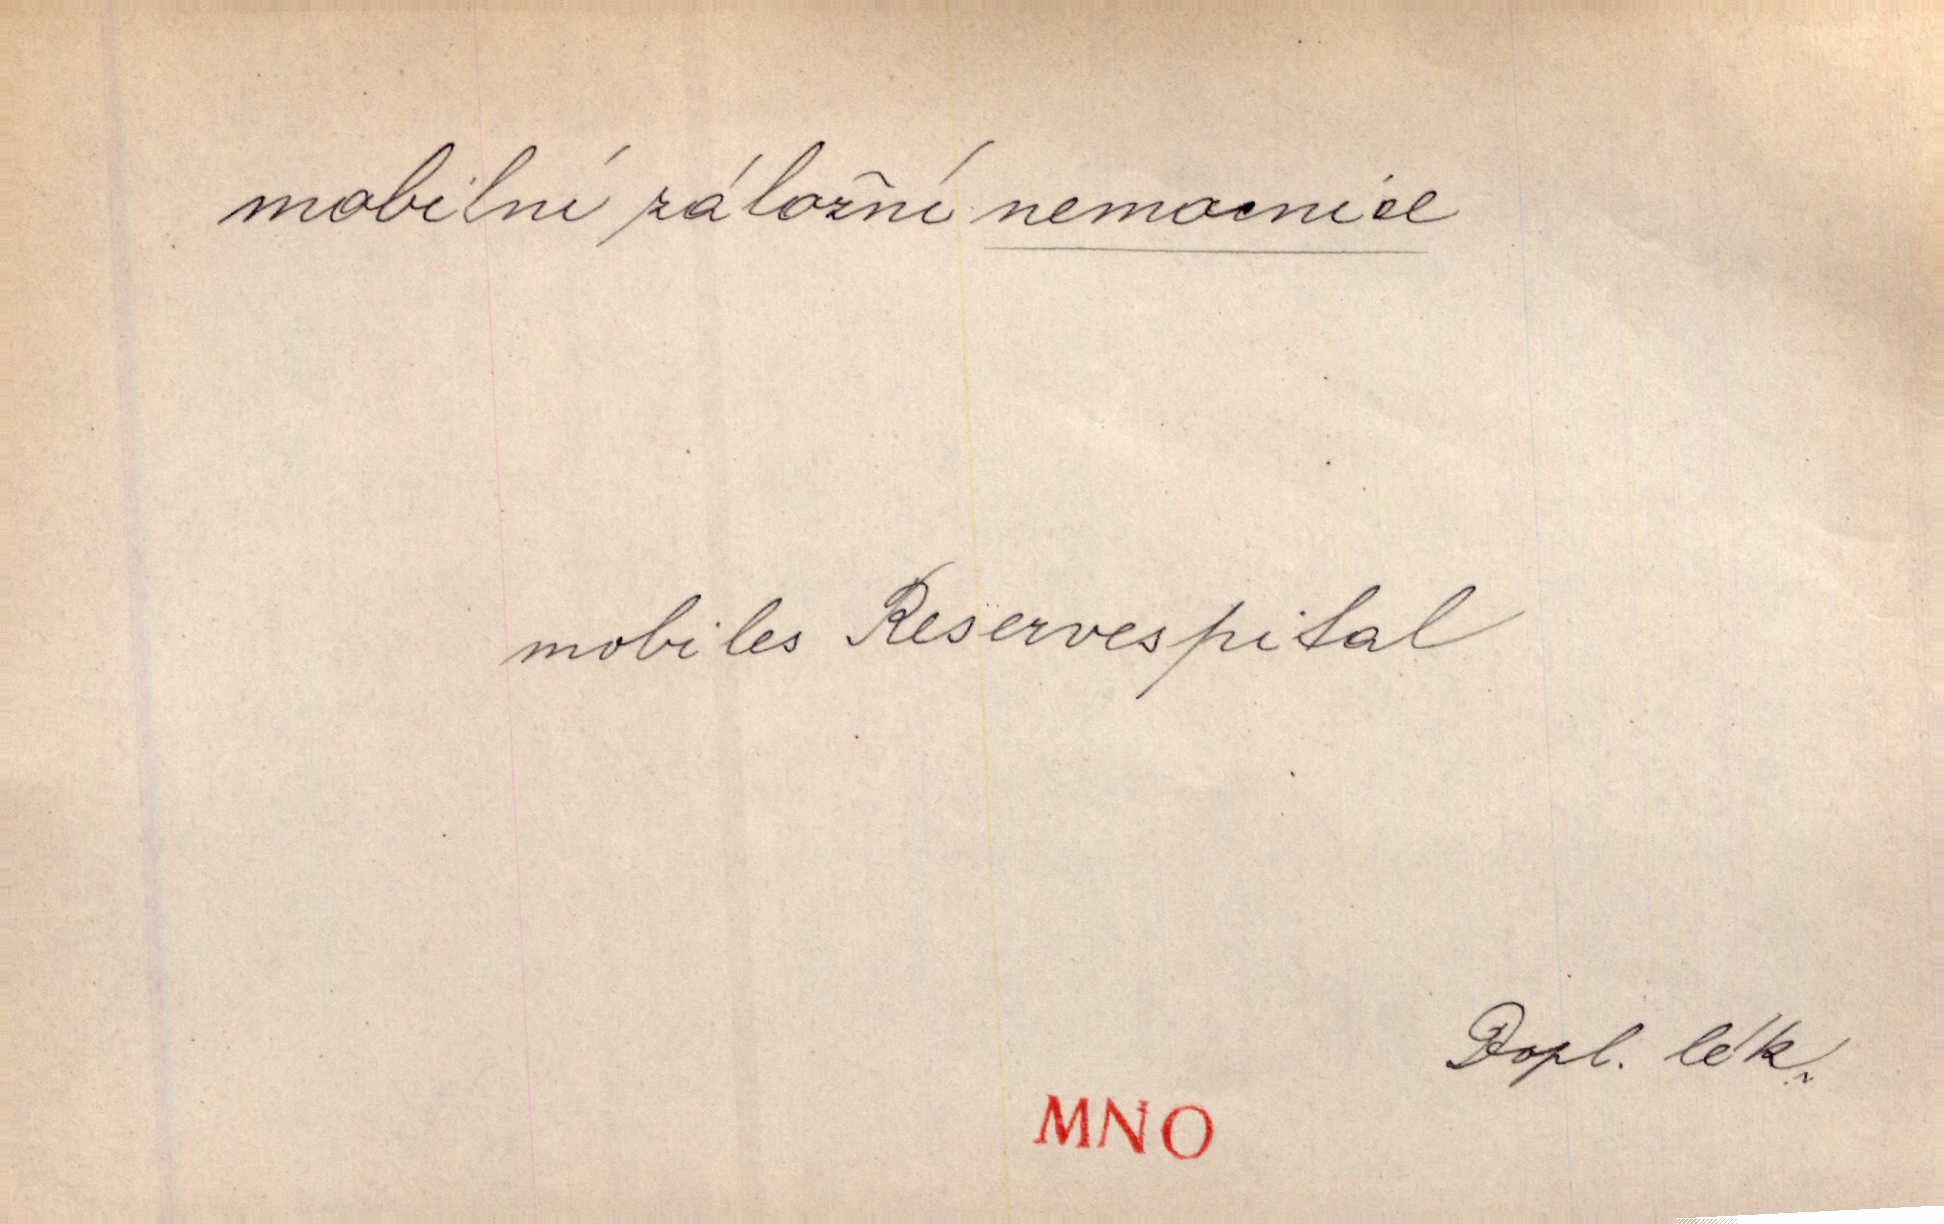 mobilní záložní nemocnice
mobiles Reservespital
Dopl. lék.
MNO